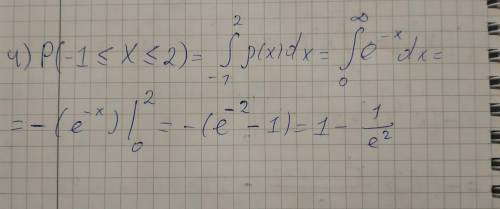 4) P(-1 ≤ X ≤ 2) = ∫_{-1}^{2} p(x)dx = ∫_{0}^{∞} e^{-x} dx =
= -(e^{-x})|_{0}^{2} = -(e^{-2} - 1) = 1 - 1/e^{2}